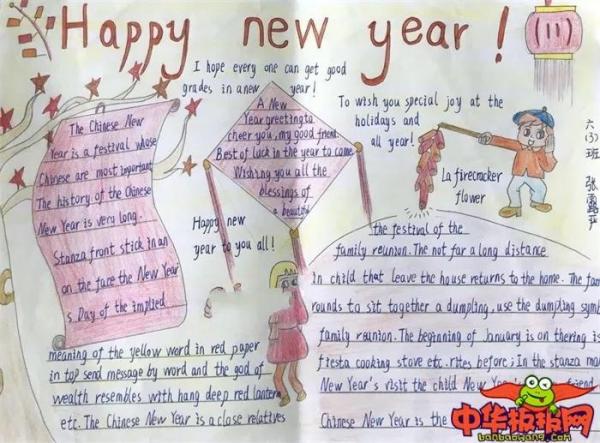 Happy new year! (11)
I hope every one can get good
grades in a new year!
The Chinese New
Year is a festival whose
Chinese are most important
The history of the Chinese
New Year is very long.
Stanza front stick in an
on the face the New Year
s Day of the implied
meaning of the yellow word in red paper
in top send message by word and the god of
wealth resembles with hang deep red lantern
etc. The Chinese New Year is a close relatives
A New
Year greeting to
cheer you, my good friend.
Best of luck in the year to come
Wishing you all the
blessings of
a beautiful
Happy new
year to you all!
To wish you special joy at the
holidays and
all year!
La firecracker
flower
六(3)班 张露
the festival of the
family reunion. The not far a long distance
in child that leave the house returns to the home. The fam
rounds to sit together a dumpling, use the dumpling symb
family reunion. The beginning of January is on thering is
fiesta cooking stove etc. rites before; In the stanza mo
New Year's visit the child New Year friend
Chinese New Year is the
中华板报网
banbaowang.com